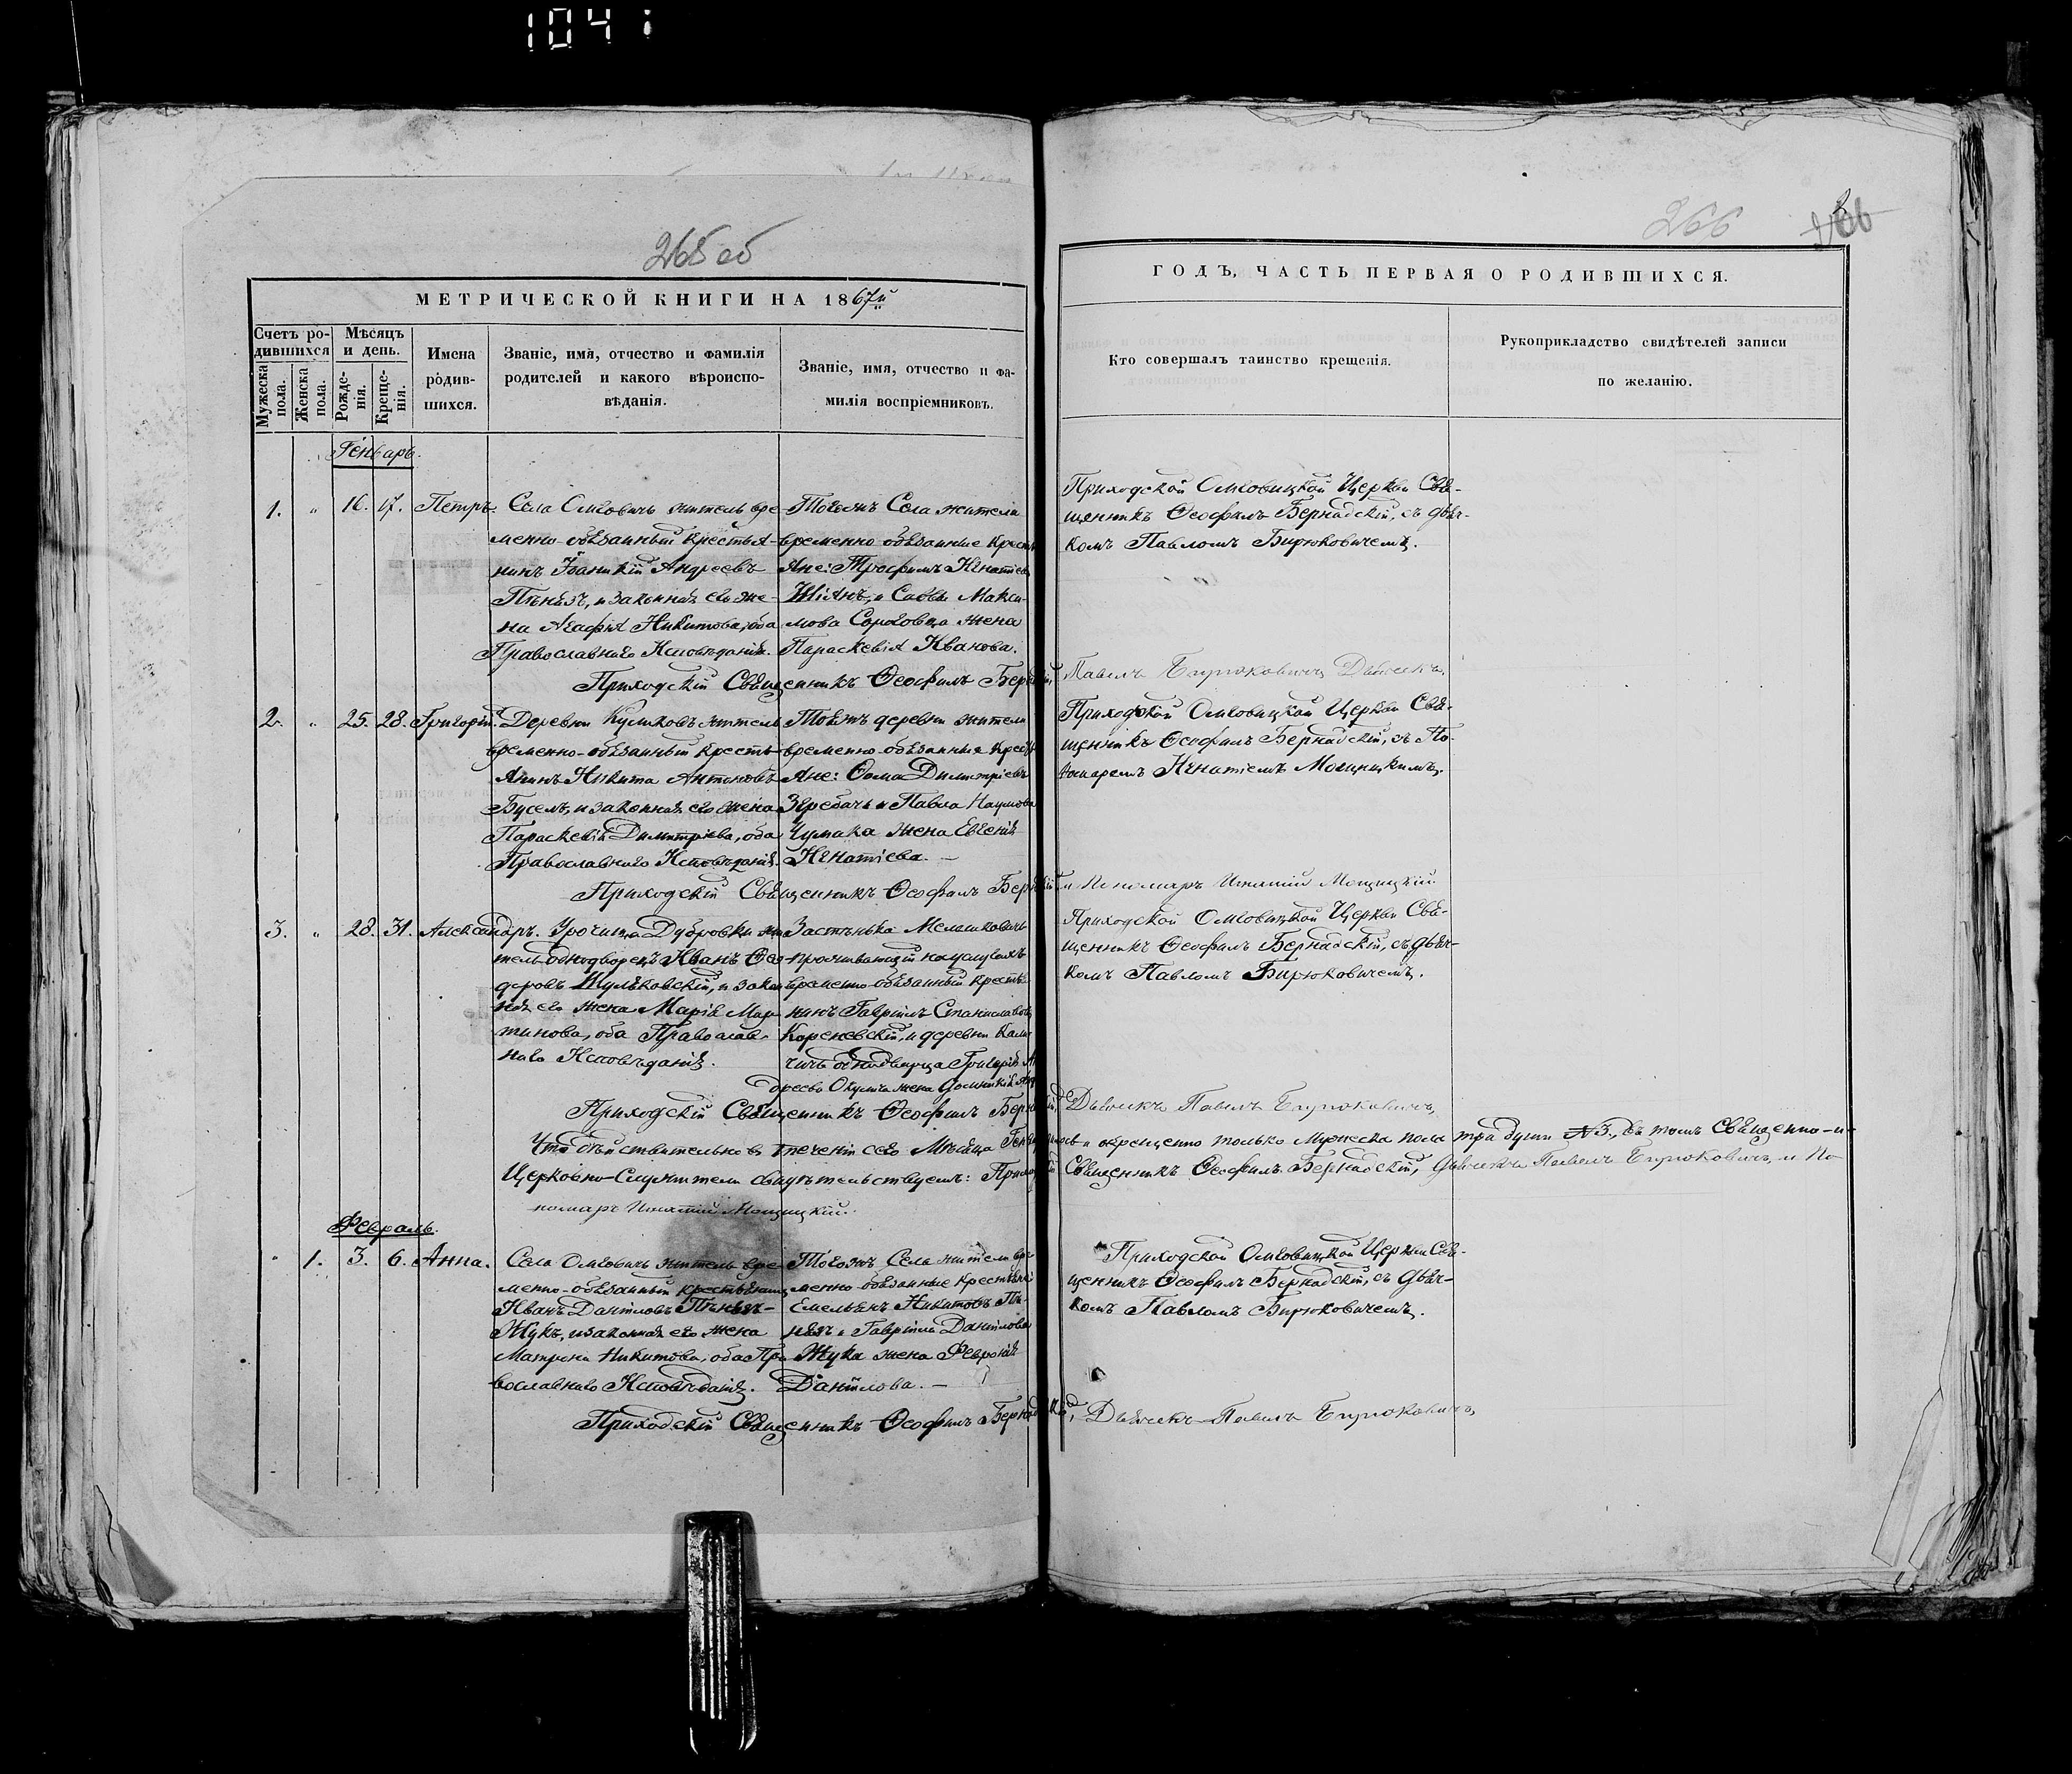 1041
265 об
МЕТРИЧЕСКОЙ КНИГИ НА 1867й
Счетъ ро-
дившихся
Мужеска пола.
Женска пола.
Мѣсяцъ
и день.
Рожде-
нія.
Креще-
нія.
Имена
родив-
шихся.
Званіе, имя, отчество и фамилія
родителей и какого вѣроиспо-
вѣданія.
Званіе, имя, отчество и фа-
милія воспріемниковъ.
Генварь.
1. " 16. 17. Петръ.
Села Омговичъ житель вре-
менно-обязанный крестья-
нинъ Іоаникій Андреевъ
Пѣнязь, и законная его же-
на Агафія Никитова, оба
Православнаго Исповѣданія.
Тогожъ Села жители
временно-обязанные крестья
яне: Трофимъ Игнатіевъ
и Саввы Макси-
мова жена
Параскевія Иванова.
Приходскій Священникъ Ѳеофилъ
2. " 25. 28. Григорій.
Деревни Кулаковъ житель
временно-обязанный кресть-
янинъ Никита Антоновъ
Бусель, и законная его жена
Параскевія Димитріева, оба
Православнаго Исповѣданія.
Тоежъ деревни жители
временно-обязанные кресть-
яне: Ѳома Димитріевъ
и Павла Наумова
Чумака жена Евгенія
Игнатіева. —
Приходскій Священникъ Ѳеофилъ
3. " 28. 31. Александръ.
Урочища Дубровки жи-
тель однодворецъ Иванъ Ѳео-
доровъ и закон
ная его жена Марія Мар-
тинова, оба Православ-
наго Исповѣданія.
Застѣнка
проживающій
временно-обязанный крестья
нинъ Гавріилъ Станиславовъ
Кореневскій, и деревни
однодворца Григорія Ан
дреева жена
Приходскій Священникъ Ѳеофилъ
Что дѣйствительно въ теченіи сего Мѣсяца
Церковно-Служители свидѣтельствуемъ:
номарь Игнатій
Февраль.
" 1. 3. 6. Анна.
Села Омговичъ житель вре-
менно-обязанный крестьянинъ
Иванъ Даніиловъ Пѣнязь-
Жукъ, и законная его жена
Матрона Никитова, оба Пра-
вославнаго Исповѣданія.
Тогожъ Села жители вре-
менно-обязанные крестьяне
Емельянъ Никитовъ Пѣ-
нязь и Гавріила Даніилова
Жука жена Февронія
Даніилова. —
Приходскій Священникъ Ѳеофилъ
266
ГОДЪ, ЧАСТЬ ПЕРВАЯ О РОДИВШИХСЯ.
Кто совершалъ таинство крещенія.
Рукоприкладство свидѣтелей записи
по желанію.
Приходской Омговицкой Церкви Свя-
щенникъ Ѳеофилъ Бернадскій, съ дьяч-
комъ Павломъ Бирюковичемъ.
Павелъ Бирюковичъ Дьячекъ.
Приходской Омговицкой Церкви Свя-
щенникъ Ѳеофилъ Бернадскій, съ По-
номаремъ Игнатіемъ
и Пономарь Игнатій
Приходской Омговицкой Церкви Свя-
щенникъ Ѳеофилъ Бернадскій, съ дьяч-
комъ Павломъ Бирюковичемъ.
Дьячекъ Павелъ Бирюковичъ
и окрещено только Мужеска пола три души №3., въ томъ Священно-и-
Священникъ Ѳеофилъ Бернадскій, дьячекъ Павелъ Бирюковичъ, и По-
Приходской Омговицкой Церкви Свя-
щенникъ Ѳеофилъ Бернадскій, съ дьяч-
комъ Павломъ Бирюковичемъ.
Дьячекъ Павелъ Бирюковичъ